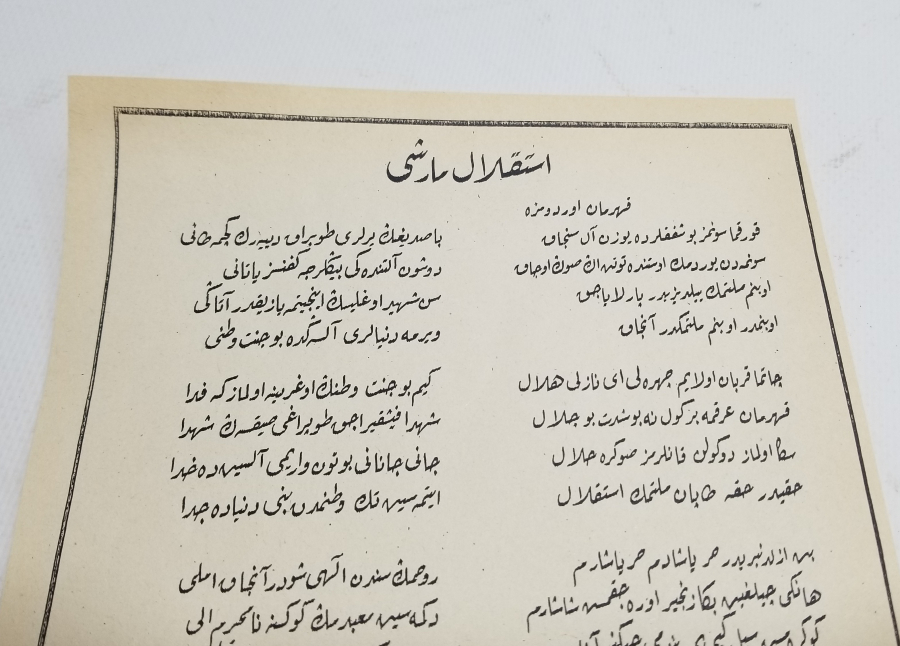 استقلال مارشی
قهرمان اوردومزه
قورقما سونمز بو شفقلرده یوزن آل سنجاق
سونمه‌دن یوردمك اوستنده توتن اڭ صوڭ اوجاق
او بنم ملتمك ییلدیزیدر پارلایاجق
او بنمدر او بنم ملتمكدر آنجاق
چاتما قربان اولایم چهره‌ڭی ای نازلی هلال
قهرمان عرقمه بر كول نه بو شدت بو جلال
سڭا اولماز دوكولن قانلرمز صوكره حلال
حقیدر حقه طاپان ملتمك استقلال
بن ازلدنبریدر حر یاشادم حر یاشارم
هانكی چیلغین بڭا زنجیر اوره‌جقمش شاشارم
باصدیغڭ یرلری طوپراق دییه‌رك كچمه طانی
دوشون آلتنده‌كی بیڭلرجه كفنسز یاتانی
سن شهید اوغلیسڭ اینجیتمه یازیقدر آتاڭی
ویرمه دنیالری آلسه‌ڭده بو جنت وطنی
كیم بو جنت وطنڭ اوغرینه اولماز كه فدا
شهدا فیشقیراجق طوپراغی صیقسه‌ڭ شهدا
جانی جانانی بوتون واریمی آلسین ده خدا
ایتمه‌سین تك وطنمدن بنی دنیاده جدا
روحمڭ سندن الهی شودر آنجاق املی
دكمه‌سین معبدمڭ كوكسنه نامحرم الی